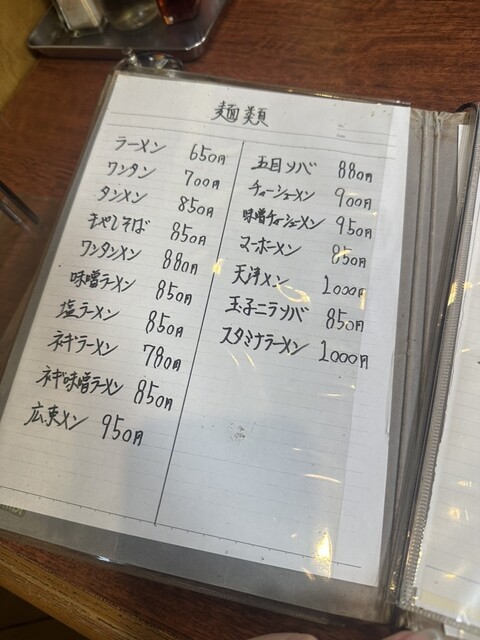 麺類
ラーメン 650円
ワンタン 700円
タンメン 850円
もやしそば 850円
ワンタンメン 880円
味噌ラーメン 850円
塩ラーメン 850円
ネギラーメン 780円
ネギ味噌ラーメン 850円
広東メン 950円
五目ソバ 880円
チャーシューメン 900円
味噌チャーシューメン 950円
マーボーメン 850円
天津メン 1000円
玉子ニラソバ 850円
スタミナラーメン 1000円